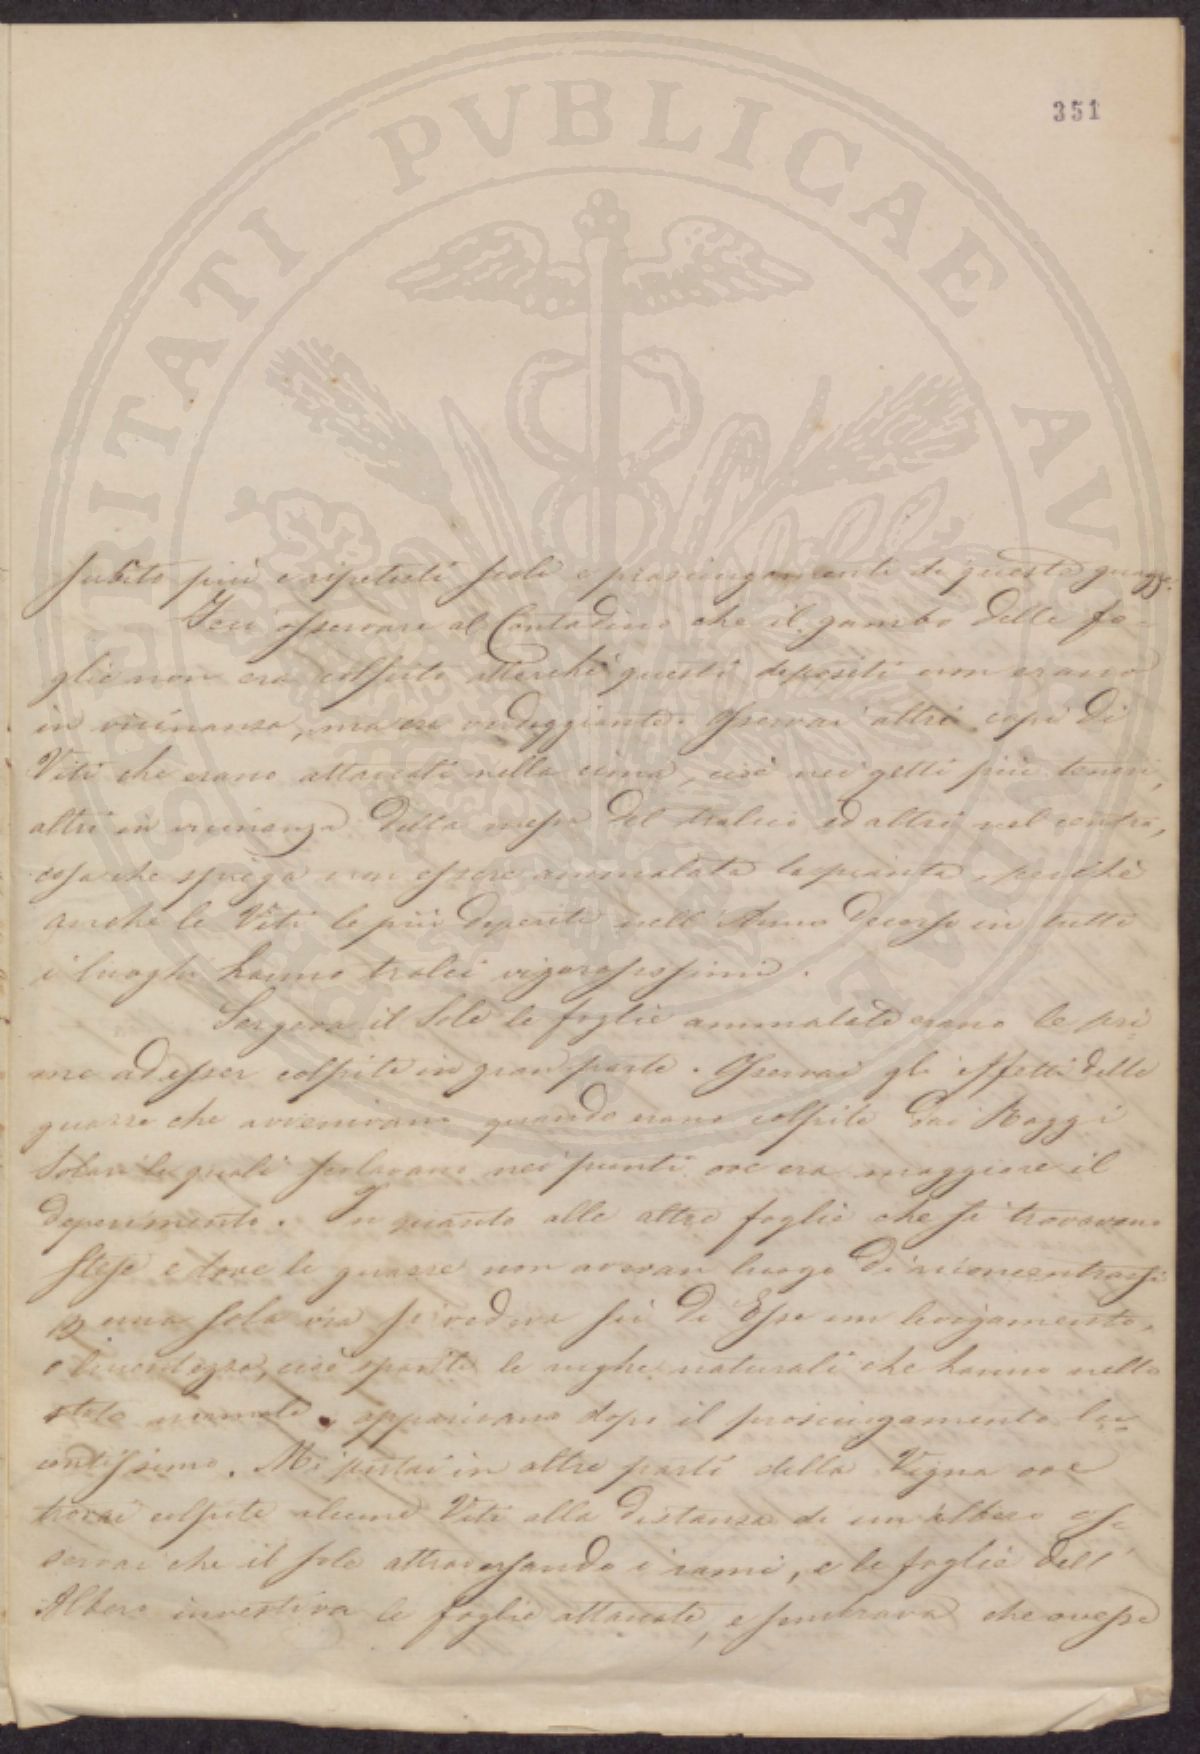 PVBLICAE
351
subito più e ripetuti scoli e prosciugamenti di queste guazze.
Feci osservare al Contadino che il gambo delle fo-
glie non era colpito allorchè questi depositi non erano
in vicinanza, ma era verdeggiante. Osservai altri capi di
Viti che erano attaccati nella cima, cioè nei getti più teneri,
altri in vicinanza della messa del tralcio ed altri nel centro,
cosa che spiega non essere ammalata la pianta, perchè
anche le Viti le più deperite nell'Anno decorso in tutti
i luoghi hanno tralci vigorosissimi.
Sorgeva il Sole le foglie ammalate erano le pri
me ad esser colpite in gran parte. Osservai gli effetti delle
guazze che avvenivano quando erano colpite dai Raggi
Solari le quali scolavano nei punti ove era maggiore il
deperimento. In quanto alle altre foglie che si trovavano
stese e dove le guazze non avevan luogo di riconcentrarsi
una sola via si vedeva su di Esse un
e lucentezza, cioè sparite le rughe naturali che hanno nello
stato normale, apparivano dopo il prosciugamento lu-
centissime. Mi portai in altre parti della Vigna ove
trovai colpite alcune Viti alla distanza di un albero os-
servai che il sole attraversando i rami, e le foglie dell'
Albero investiva le foglie attaccate, e sembrava che avesse